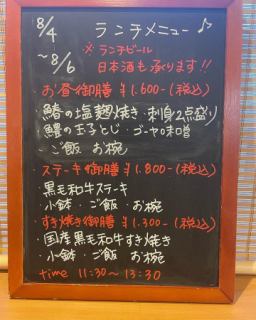 8/4 ランチメニュー♪
~8/6 ※ランチビール
日本酒も承ります!!
お昼御膳 ¥1.600-(税込)
・鰆の塩麹焼き・刺身2点盛り
・鰻の玉子とじ・ゴーヤ味噌
・ご飯 お椀
ステーキ御膳 ¥1.800-(税込)
・黒毛和牛ステーキ
・小鉢・ご飯・お椀
すき焼き御膳 ¥1.300-(税込)
・国産黒毛和牛すき焼き
・小鉢・ご飯 お椀
time 11:30~13:30